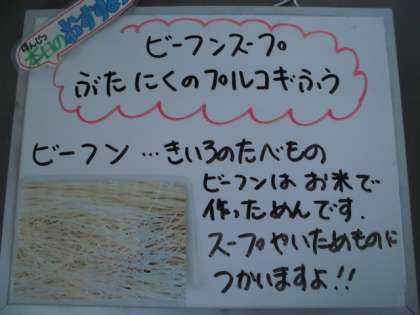 ほんじつ
本日のおすすめ
ビーフンスープ
ぶたにくのプルコギふう
ビーフン…きいろのたべもの
ビーフンは お米で
作っためんです.
スープやいためものに
つかいますよ!!